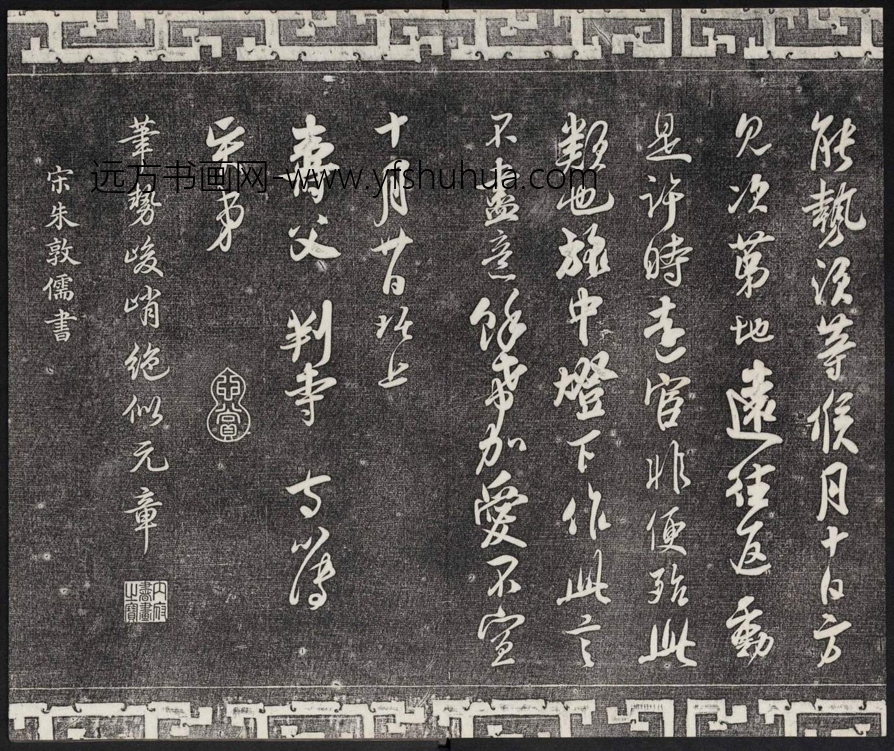 能勢須等候月十日方
見次第地遠往返動
是許時遠宦非便殆此
類也旅中燈下作此言
不盡意餘希加愛不宣
十月廿日 上
父 判寺 寺簿
老弟
筆勢峻峭絕似元章
宋朱敦儒書
內府書畫之寶
远方书画网-www.yfshuhua.com